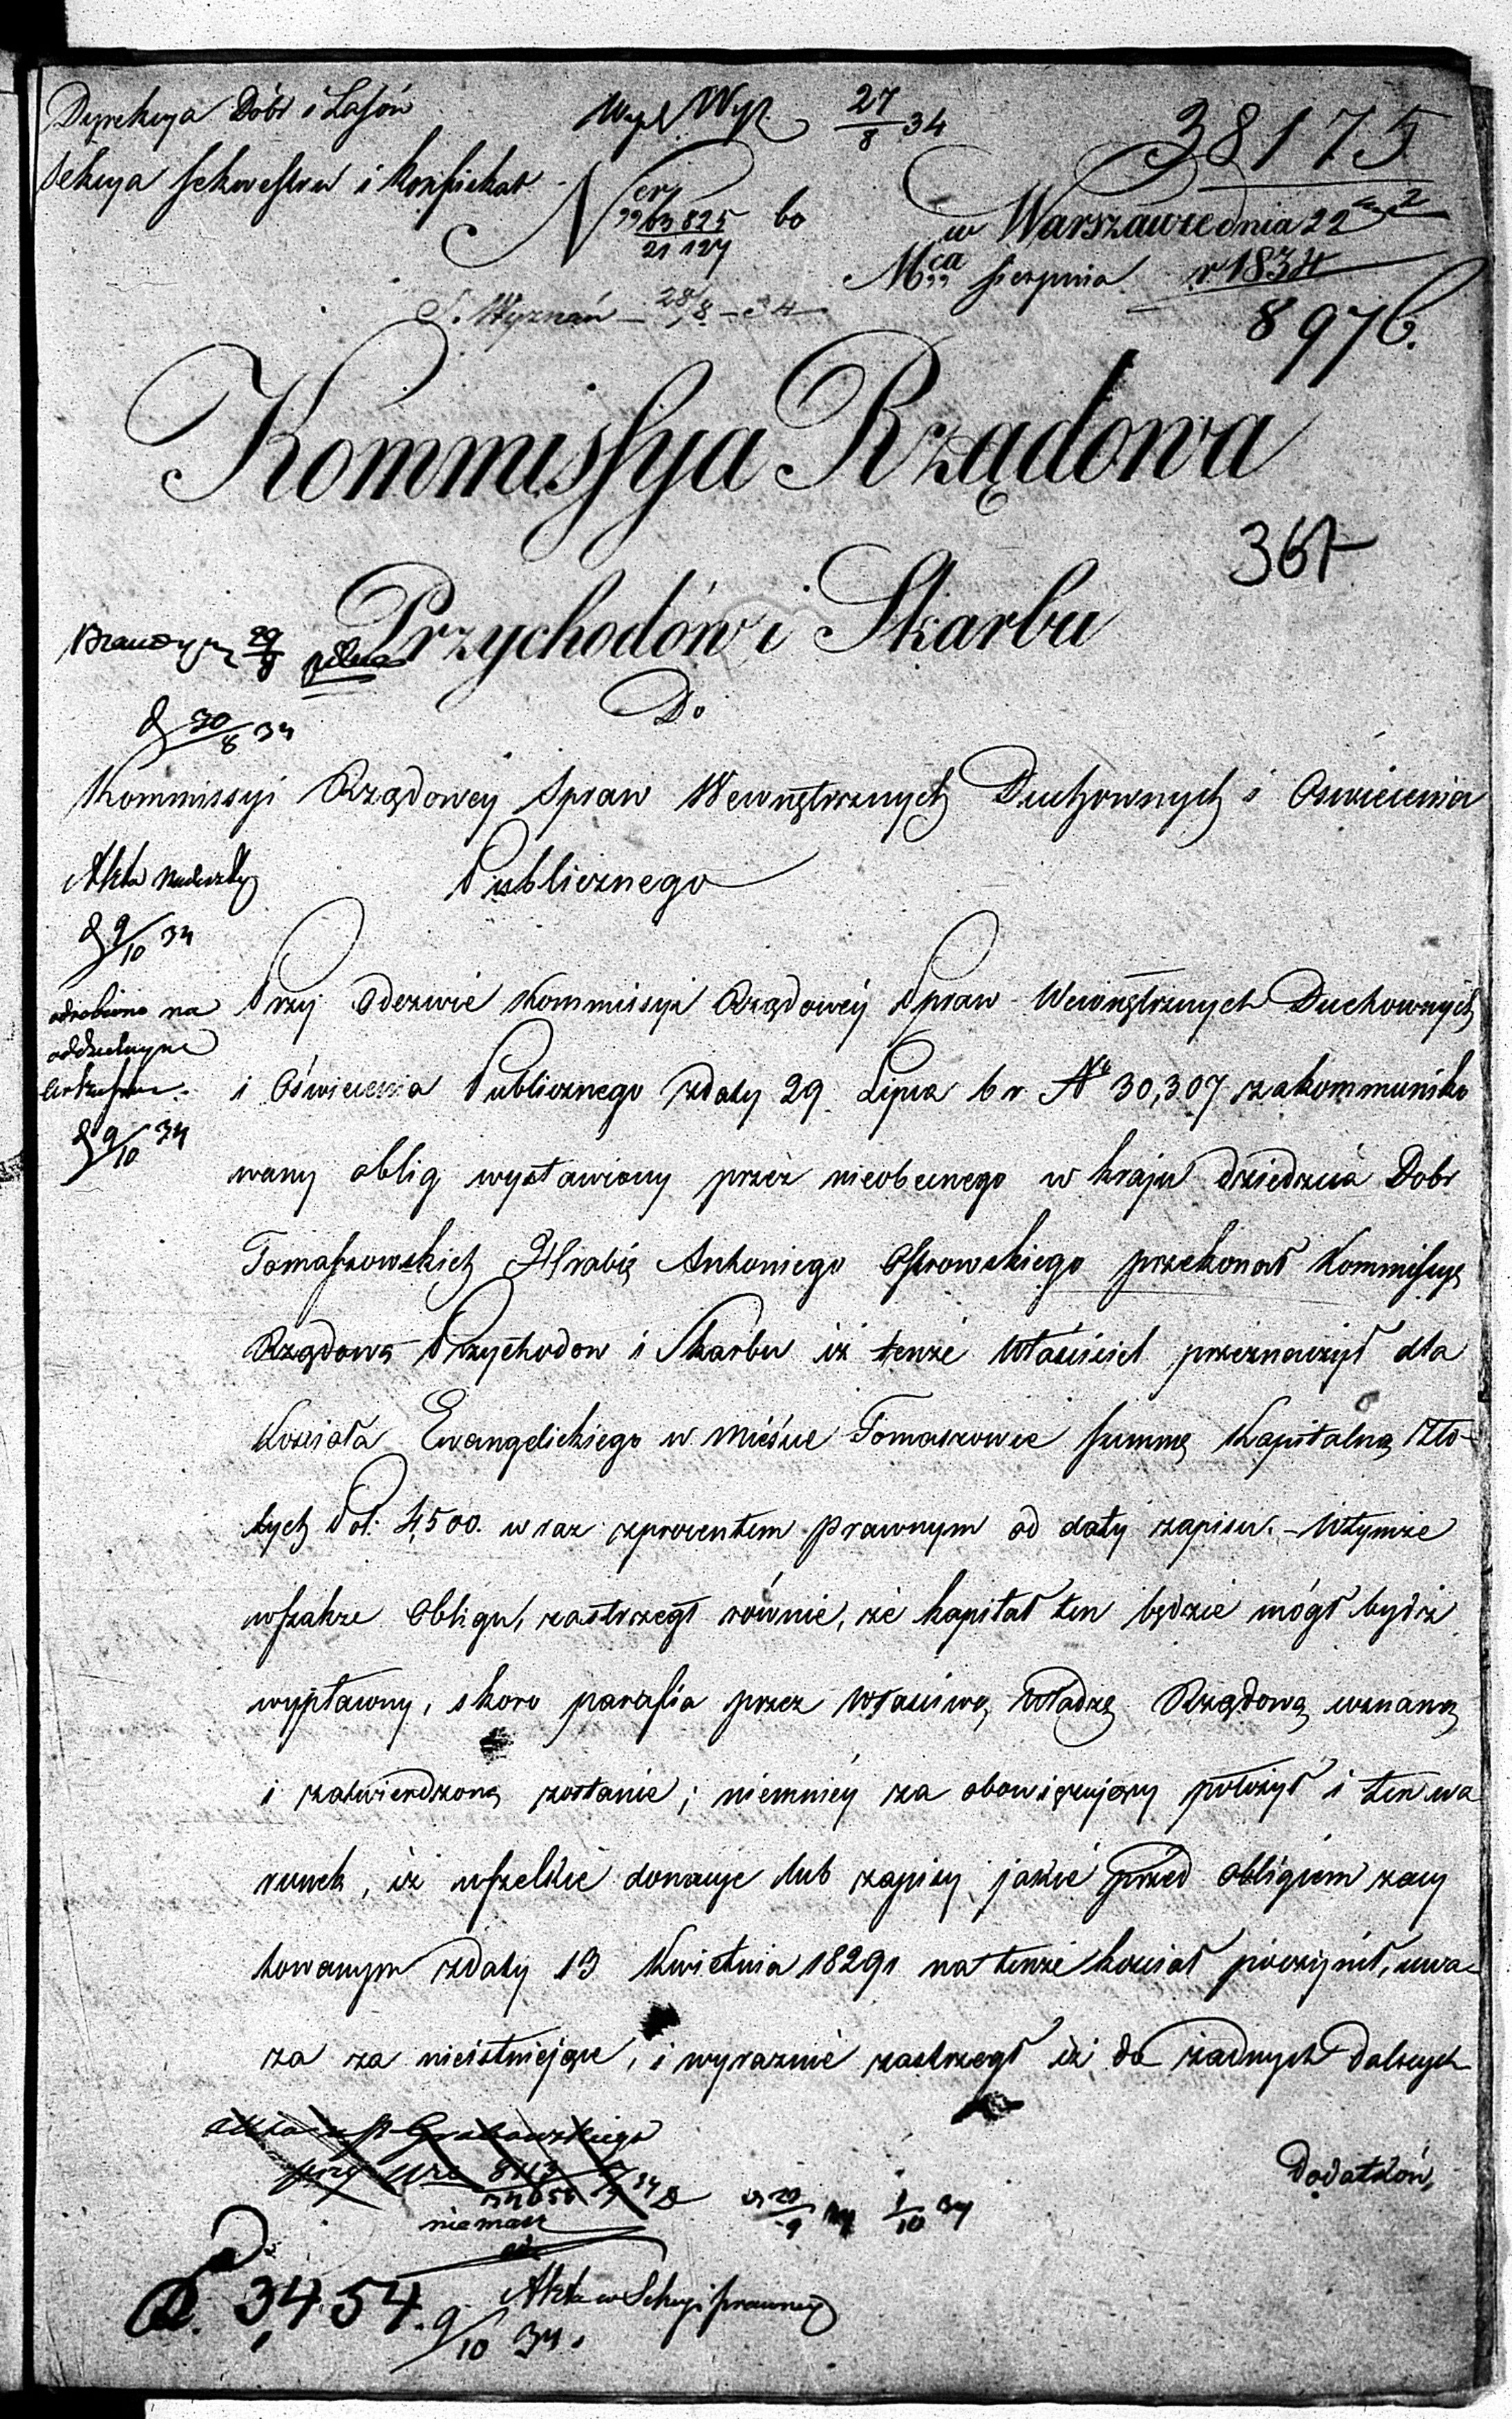 Dyrekcya Dóbr i Lasów
Sekcya Sekwestru i Konfiskat
Wyp. 27/8 34
38175
Ner 63825 / 21127 bo
w Warszawie dnia 22
Mca Sierpnia r. 1834
S. Wyznań 28/8 - 34
8976.
Kommissya Rządowa
367
Przychodów i Skarbu
29/8 pilne
Do
30/8 34
Kommissyi Rządowey Spraw Wewnętrznych Duchownych i Oswiecenia
Publicznego
Akta nadeszły
9/10 34
odrobiono na
oddzielnym
arkuszu.
9/10 34
Przy Odezwie Kommissyi Rządowéy Spraw Wewnętrznych Duchownych
i Oświecenia Publicznego zdaty 29 Lipca b r No 30,307 zakommuniko
wany oblig wystawiony przez nieobecnego w kraju dziedzica Dobr
Tomaszowskich Hrabię Antoniego Ostrowskiego przekonał Kommissyą
Rządową Przychodow i Skarbu iż tenże Właściciel przeznaczył dla
Kościoła Ewangelickiego w mieście Tomaszowie summę Kapitalną Zło-
tych Pol: 4,500. wraz zprocentem prawnym od daty zapisu. - Wtymże
wszakże Obligu, zastrzegł równie, że kapitał ten będzie mógł bydz
wypłacony, skoro parafia przez właściwą władzę Rządową uznaną
i zatwierdzoną zostanie; niemniéy za obowięzujący położył i ten wa
runek, iż wszelkie donacye lub zapisy jakie przed obligiem zacy
towanym zdaty 13 Kwietnia 1829 r na tenże kościoł poczynił, uwa-
za za nieistniejące, i wyraznie zastrzegł iż do żadnych dalszych
Dodatków,
Grabowskiego
przy Nrze
niemasz
20/9 1/10 34
3454.
Akta w Sekcyi prawney
9/10 34.